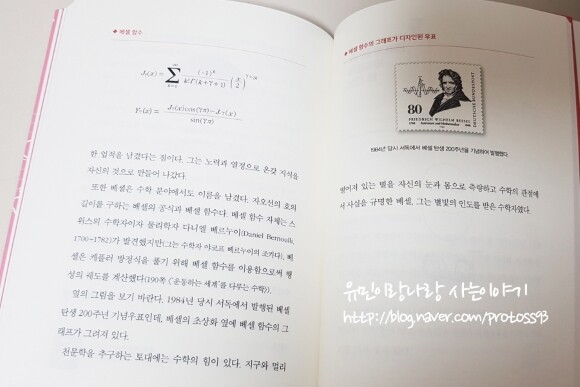 베셀 함수
J₁(x) = ∑ (-1)ᵏ / k!Γ(k+γ+1) (x/2)
Yᵧ(x) = Jᵧ(x)cos(γπ)-J₋ᵧ(x) / sin(γπ)
한 업적을 남겼다는 점이다. 그는 노력과 열정으로 온갖 지식을
자신의 것으로 만들어 나갔다.
또한 베셀은 수학 분야에서도 이름을 남겼다. 자오선의 호의
길이를 구하는 베셀의 공식과 베셀 함수다. 베셀 함수 자체는 스
위스의 수학자이자 물리학자 다니엘 베르누이(Daniel Bernoulli,
1700-1782)가 발견했지만(그는 수학자 야코프 베르누이의 조카다), 베
셀은 케플러 방정식을 풀기 위해 베셀 함수를 이용함으로써 행
성의 궤도를 계산했다(190쪽 《'운동하는 세계'를 다루는 수학》).
옆의 그림을 보기 바란다. 1984년 당시 서독에서 발행된 베셀
탄생 200주년 기념우표인데, 베셀의 초상화 옆에 베셀 함수의 그
래프가 그려져 있다.
천문학을 추구하는 토대에는 수학의 힘이 있다. 지구와 멀리
베셀 함수의 그래프가 디자인된 우표
80
DEUTSCHE BUNDESPOST
FRIEDRICH WILHELM BESSEL
1984년 당시 서독에서 베셀 탄생 200주년을 기념하여 발행했다.
떨어져 있는 별을 자신의 눈과 몸으로 측량하고 수학의 관점에
서 사실을 규명한 베셀, 그는 별빛의 인도를 받은 수학자였다.
유민이랑나랑 사는이야기
http://blog.naver.com/protoss93